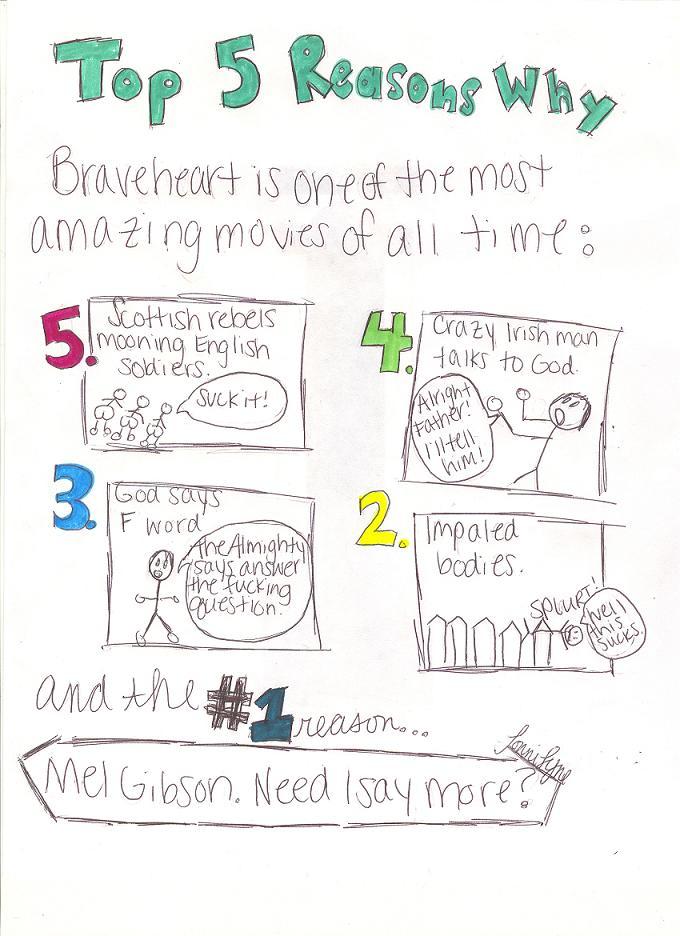 Top 5 Reasons Why
Braveheart is one of the most
amazing movies of all time:
5.
Scottish rebels
mooning English
soldiers.
Suck it!
4.
Crazy Irish man
talks to God.
Alright
Father!
I'll tell
him!
3.
God says
F word
The Almighty
says answer
the fucking
question.
2.
Impaled
bodies.
SPLUURT!
Well
this
sucks.
and the #1 reason...
Mel Gibson. Need I say more?